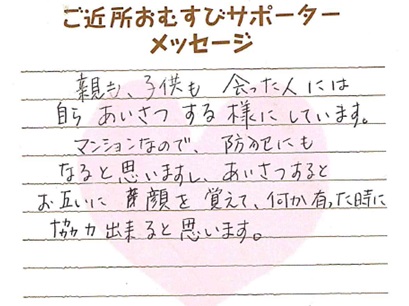 ご近所おむすびサポーター
メッセージ
親も、子供も 会った人には
自ら あいさつ する 様に しています。
マンションなので、防犯にも
なると思いますし、あいさつすると
お互いに 顔を 覚えて、何か有った時に
協力 出来ると 思います。